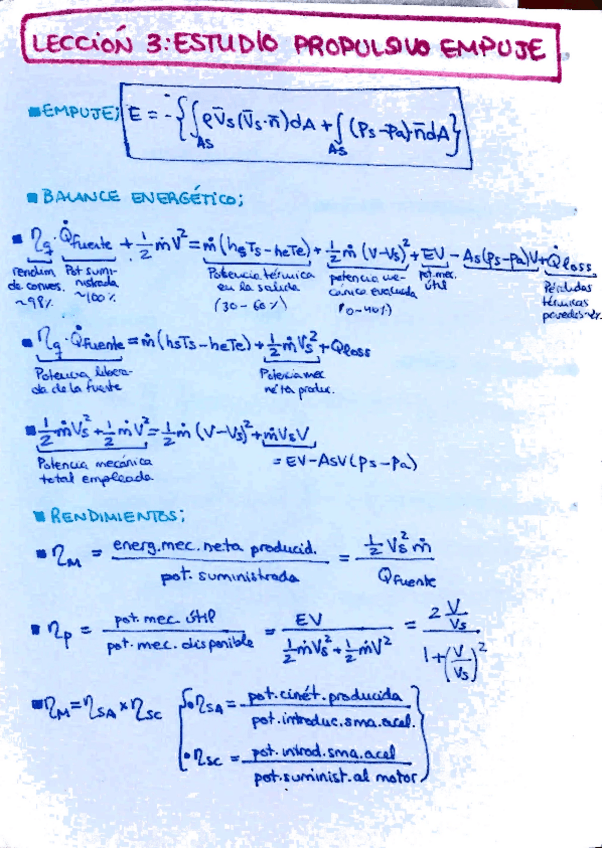 LECCIÓN 3: ESTUDIO PROPULSIVO EMPUJE
■ EMPUJE; E = -{∫_{As} ρV̄s(V̄s·n̄)dA + ∫_{As} (Ps-Pa)·n̄dA}
■ BALANCE ENERGÉTICO;
■ η_q·Q̇fuente + 1/2 ṁV² = ṁ(hsTs-heTe) + 1/2 ṁ(V-Vs)² + EV - As(Ps-Pa)V + Q̇loss
rendim de conves. ~98% Pot sumi- nistrada ~100% Potencia térmica en la salida (30-60%) potencia me- cánica evacuada (0-40%) pot.mec. útil Pérdidas térmicas
■ η_q·Q̇fuente = ṁ(hsTs-heTe) + 1/2 ṁVs² + Qloss
Potencia libera- da de la fuente Potencia mec neta produc.
■ 1/2 ṁVs² + 1/2 ṁV² = 1/2 ṁ(V-Vs)² + ṁVsV
Potencia mecánica total empleada = EV-AsV(Ps-Pa)
■ RENDIMIENTOS;
■ η_M = energ.mec.neta producid. / pot. suministrada = 1/2 Vs² ṁ / Qfuente
■ η_p = pot. mec. útil / pot. mec. disponible = EV / (1/2 ṁVs² + 1/2 ṁV²) = 2 V/Vs / (1+(V/Vs)²)
■ η_M = η_SA × η_SC { • η_SA = pot.cinét.producida / pot.introduc.sma.acel.
• η_SC = pot.introd.sma.acel / pot.suminist.al motor }